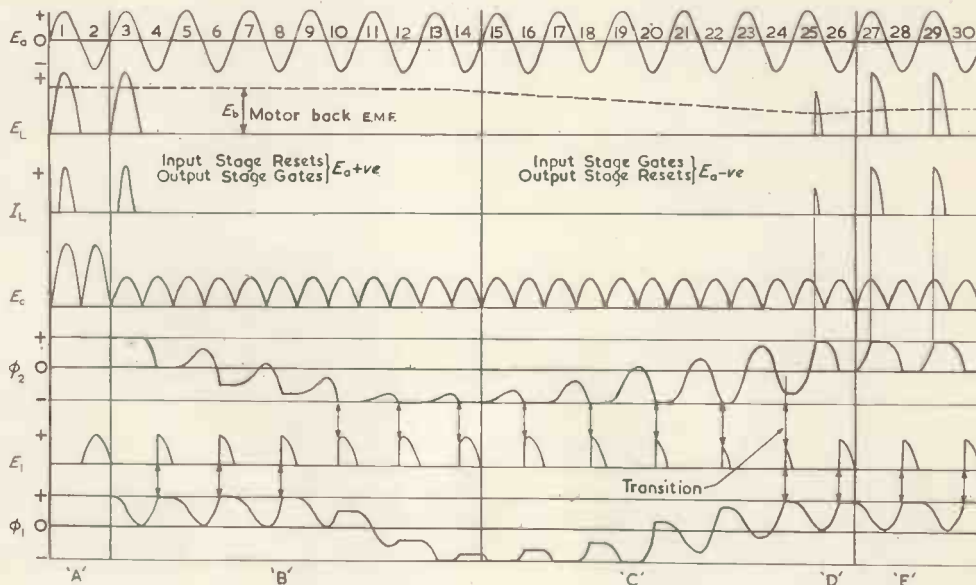 +
Ea 0
−
1 2 3 4 5 6 7 8 9 10 11 12 13 14 15 16 17 18 19 20 21 22 23 24 25 26 27 28 29 30
+
EL
Eb Motor back E.M.F.
Input Stage Resets
Output Stage Gates } Ea+ve
Input Stage Gates
Output Stage Resets } Ea−ve
+
IL
Ec
+
ϕ2 0
−
+
E1
Transition
+
ϕ1 0
−
'A' 'B' 'C' 'D' 'E'